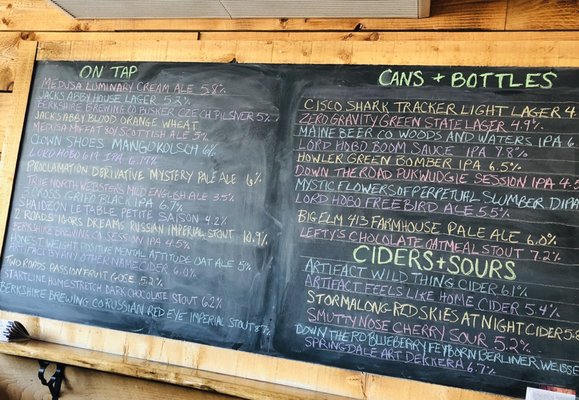 ON TAP
MEDUSA LUMINARY CREAM ALE 5.8%
JACKS ABBY HOUSE LAGER 5.2%
BERKSHIRE BREWING CO BUSKER CZECH PILSVER 5.2%
JACKS ABBY BLOOD ORANGE WHEAT
MEDUSA MOFFAT BOY SCOTTISH ALE 5%
CLOWN SHOES MANGO KOLSCH 6%
LORD HOBO 617 IPA 6.17%
PROCLAMATION DERIVATIVE MYSTERY PALE ALE 6%
TRUE NORTH WEBSTER'S MILD ENGLISH ALE 3.5%
BLACK IPA 6.7%
SHAIDZON ETABLE PETITE SAISON 4.2%
2 ROADS IGORS DREAMS RUSSIAN IMPERIAL STOUT 10.9%
BERKSHIRE BREWING CO SESSION IPA 4.5%
HONEST WEIGHT POSITIVE MENTAL ATTITUDE OAT ALE 5%
BY ANY OTHER NAME CIDER 6.0%
TWO ROADS PASSION FRUIT GOSE 5.2%
STARTLINE HOMESTRETCH DARK CHOCOLATE STOUT 6.2%
BERKSHIRE BREWING CO RUSSIAN RED EYE IMPERIAL STOUT 8.7%
CANS + BOTTLES
CISCO SHARK TRACKER LIGHT LAGER 4
ZERO GRAVITY GREEN STATE LAGER 4.9%
MAINE BEER CO WOODS AND WATERS IPA 6
LORD HOBO BOOM SAUCE IPA 7.8%
HOWLER GREEN BOMBER IPA 6.5%
DOWN THE ROAD PUKWUDGIE SESSION IPA 4
MYSTIC FLOWERS OF PERPETUAL SLUMBER DIPA
LORD HOBO FREEBIRD ALE 5.5%
BIG ELM 413 FARMHOUSE PALE ALE 6.0%
LEFTY'S CHOCOLATE OATMEAL STOUT 7.2%
CIDERS+SOURS
ARTIFACT WILD THING CIDER 6.1%
ARTIFACT FEELS LIKE HOME CIDER 5.4%
STORMALONG RED SKIES AT NIGHT CIDER 5.8
SMUTTYNOSE CHERRY SOUR 5.2%
DOWN THE RD BLUEBERRY FEYBORN BERLINER WEISSE
SPRINGDALE ART DEKKERA 6.7%